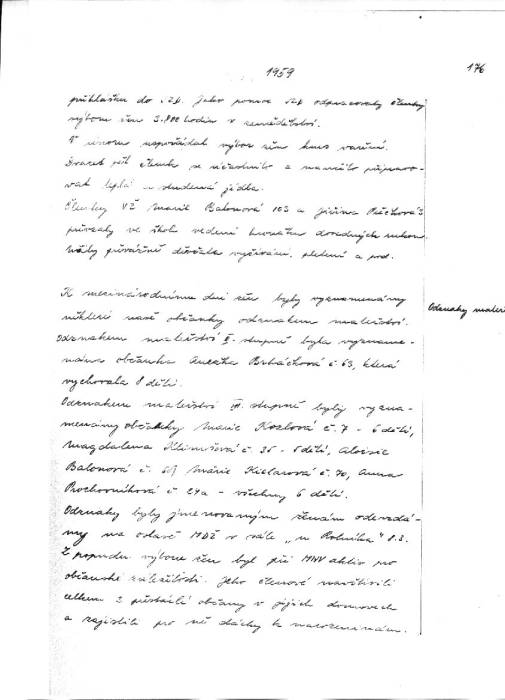 1959
176
přihlášku do JZD. Jako pomoc JZD odpracovaly členky
výboru žen 3.800 hodin v zemědělství.
V únoru uspořádal výbor žen kurs vaření.
Dvacet pět členek se zúčastnilo a naučilo připravo-
vat teplá a studená jídla.
Členky VŽ Marie Balonová 103 a Jiřina
převzaly ve škole vedení kroužku dovedných rukou.
děvčata vyšívání, pletení a pod.
K mezinárodnímu dni žen byly vyznamenány
některé naše občanky odznakem mateřství.
Odznaky mateř
Odznakem mateřství II. stupně byla vyzname-
nána občanka Anežka Brháčková č 63, která
vychovala 8 dětí.
Odznakem mateřství III. stupně byly vyzna-
menány občanky Marie Kozlová č. 7 - 6 dětí,
Magdalena Klimušová č. 35 - 5 dětí, Aloisie
Balonová č. Marie Kielarová č. 70, Anna
Prochovníková č 27a - všechny 6 dětí.
Odznaky byly jmenovaným ženám odevzdá-
ny na oslavě MDŽ v sále „u Rolníka" 8.3.
Z popudu výboru žen byl při MNV aktiv pro
občanské záležitosti. Jeho členové navštívili
celkem 2 přestárlé občany v jejich domovech
a zajistili pro ně dárky k narozeninám.